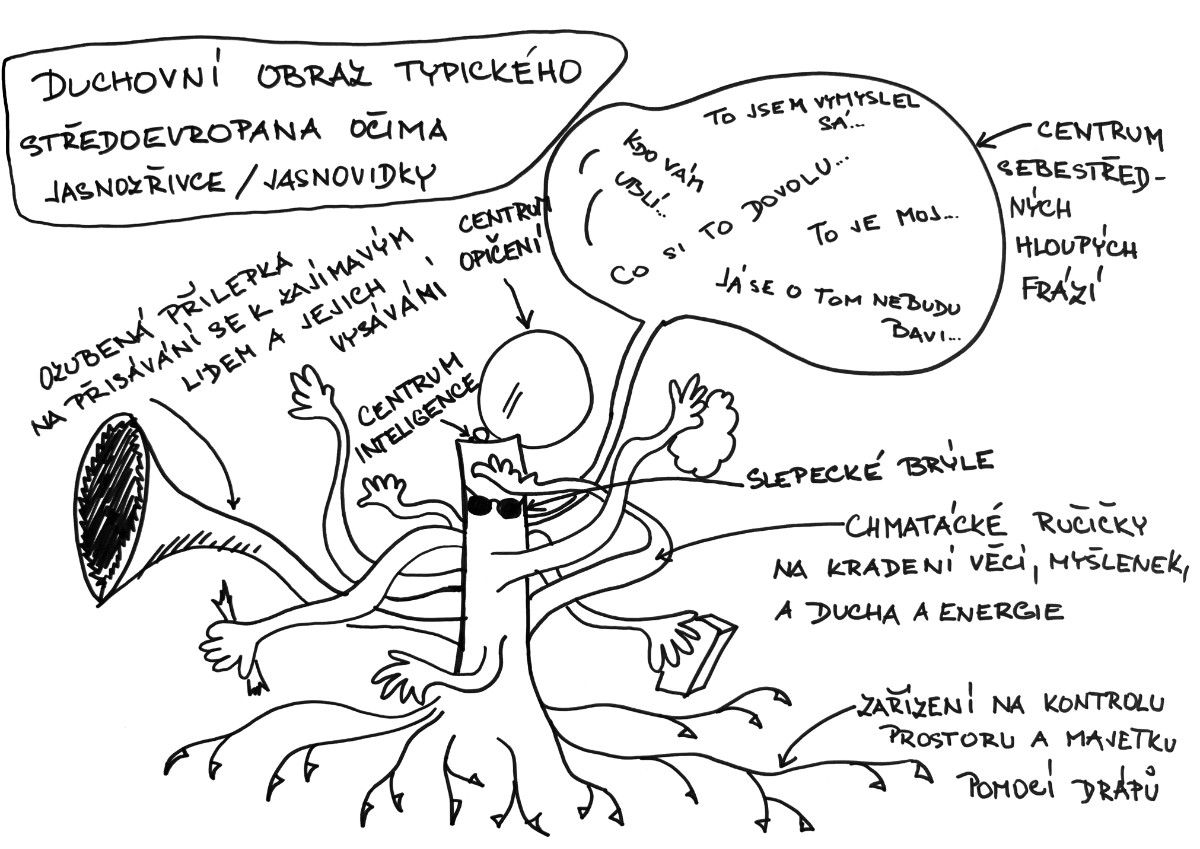 DUCHOVNÍ OBRAZ TYPICKÉHO
STŘEDOEVROPANA OČIMA
JASNOZŘIVCE / JASNOVIDKY
TO JSEM VYMYSLEL
SÁ...
KDO VÁM
UBLÍ...
CO SI TO DOVOLU...
TO JE MOJ...
JÁ SE O TOM NEBUDU
BAVI...
CENTRUM
SEBESTŘED-
NÝCH
HLOUPÝCH
FRÁZÍ
CENTRUM
OPIČENÍ
OZUBENÁ PŘÍLEPKA
NA PŘISÁVÁNÍ SE K ZAJÍMAVÝM
LIDEM A JEJICH
VYSÁVÁNÍ
CENTRUM
INTELIGENCE
SLEPECKÉ BRÝLE
CHMATÁCKÉ RUČIČKY
NA KRADENÍ VĚCÍ, MYŠLENEK,
A DUCHA A ENERGIE
ZAŘÍZENÍ NA KONTROLU
PROSTORU A MAJETKU
POMOCÍ DRÁPŮ